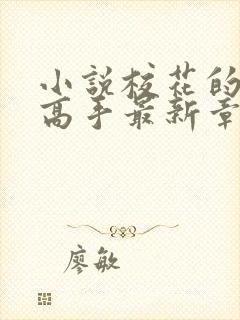 小說校花的
高手最新章
廖敏